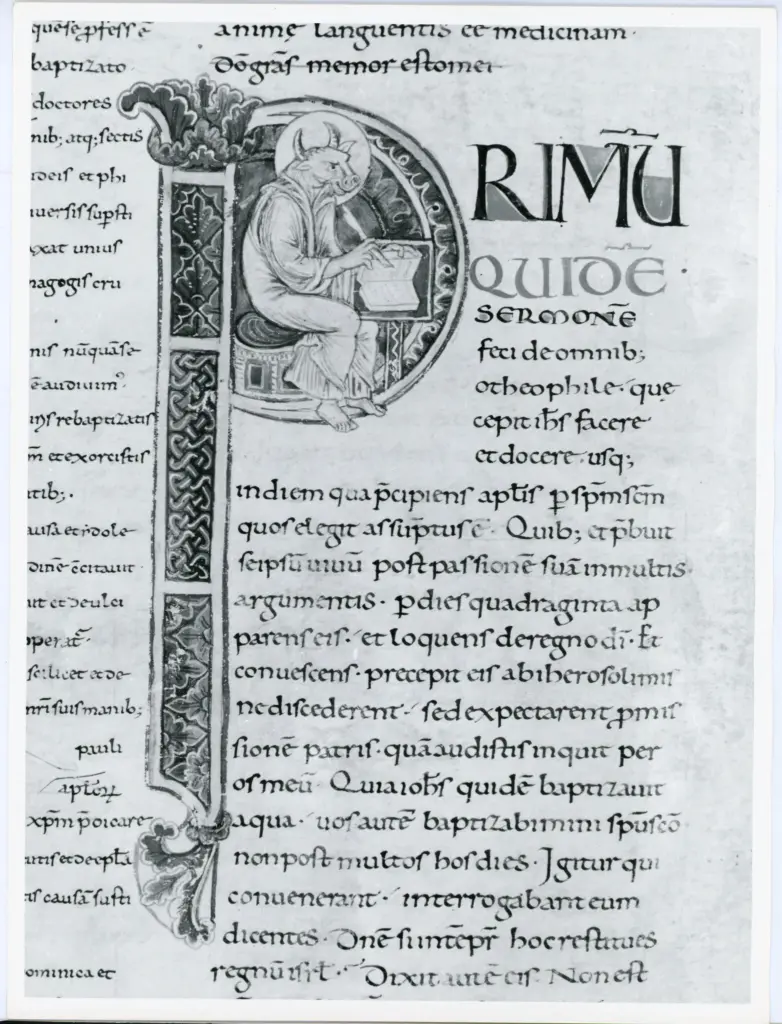 quese ꝓfess ē
baptizato
doctores
nib; atq; sectis
et phi
uersis supsti
unius
nagogis eru
nis nūquā se
ē audiuim᾽
rebaptizatis
et exorcistis
tib;.
causa et idole
dinē ēcitauit
uit et Deulei
operat̄
scilicet et de
suis manib;
pauli
apłoꝝ
xp̄m p̄dicare
et de epła
causā susti
ominica et
animę languentis eē medicinam·
D̄o grās memor esto mei
PRIMŪ
QUIDĒ·
SERMONĒ
feci de omnib;
o theophile· que
cepit ih̄s facere
et docere· usq;
in diem qua p̄cipiens apłis ꝑ sp̄m scm̄
quos elegit assūptus ē· Quib; et p̄buit
seipsū uiuū post passionē suā in multis
argumentis· ꝑ dies quadraginta ap
parens eis· et loquens de regno dī· Et
conuescens· precepit eis ab iherosolimis
ne discederent· sed expectarent ꝓmis
sionē patris· quā audistis inquit per
os meū· Quia ioh̄s quidē baptizauit
aqua· uos autē baptizabimini sp̄u sc̄o
non post multos hos dies· Igitur qui
conuenerant· interrogabant eum
dicentes· Dn̄e si in tēpr̄ hoc restitues
regnū isr̄l· Dixit autē eis· Non est